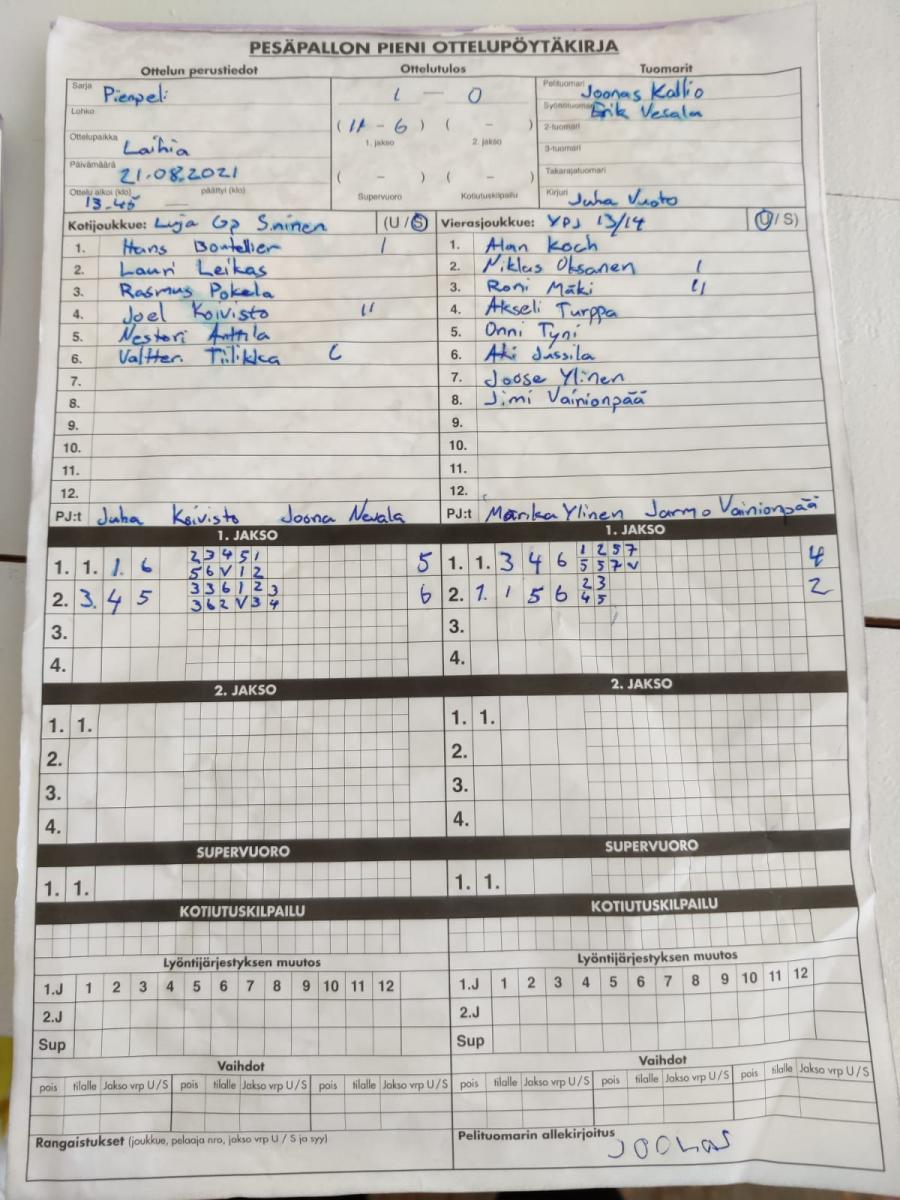 PESÄPALLON PIENI OTTELUPÖYTÄKIRJA
Ottelun perustiedot
Sarja Pienpeli
Lohko
Ottelupaikka Laihia
Päivämäärä 21.08.2021
Ottelu alkoi (klo) 13.45 päättyi (klo)
Ottelutulos
1 — 0
(11 - 6) ( - )
1. jakso 2. jakso
( - ) ( - )
Supervuoro Kotiutuskilpailu
Tuomarit
Pelituomari Joonas Kallio
Syöttötuomari Erik Vesala
2-tuomari
3-tuomari
Takarajatuomari
Kirjuri Juha Vuoto
Kotijoukkue: Luja Gp S.ninen (U / S)
1. Hans Bontellier I
2. Lauri Leikas
3. Rasmus Pokela
4. Joel Koivisto II
5. Nestori Anttila
6. Valtteri Tiilikka C
7.
8.
9.
10.
11.
12.
PJ:t Juha Koivisto Joona Nevala
Vierasjoukkue: YPJ 13/14 (U / S)
1. Alan Koch
2. Niklas Oksanen I
3. Roni Mäki II
4. Akseli Turppa
5. Onni Tyni
6. Aki Jussila
7. Joose Ylinen
8. Jimi Vainionpää
9.
10.
11.
12.
PJ:t Marika Ylinen Jarmo Vainionpää
1. JAKSO
1. 1. 1. 6 2 3 4 5 1 5
5 6 V 1 2
2. 3. 4 5 3 3 6 1 2 3 6
3 6 2 V 3 4
3.
4.
1. JAKSO
1. 1. 3 4 6 1 2 5 7 4
5 5 7 V
2. 7. 1 5 6 2 3 2
4 5
3.
4.
2. JAKSO
1. 1.
2.
3.
4.
2. JAKSO
1. 1.
2.
3.
4.
SUPERVUORO
1. 1.
SUPERVUORO
1. 1.
KOTIUTUSKILPAILU
KOTIUTUSKILPAILU
Lyöntijärjestyksen muutos
1.J 1 2 3 4 5 6 7 8 9 10 11 12
2.J
Sup
Lyöntijärjestyksen muutos
1.J 1 2 3 4 5 6 7 8 9 10 11 12
2.J
Sup
Vaihdot
pois tilalle Jakso vrp U / S pois tilalle Jakso vrp U / S pois tilalle Jakso vrp U / S
Vaihdot
pois tilalle Jakso vrp U / S pois tilalle Jakso vrp U / S pois tilalle Jakso vrp U / S
Rangaistukset (joukkue, pelaaja nro, jakso vrp U / S ja syy)
Pelituomarin allekirjoitus
JOONAS